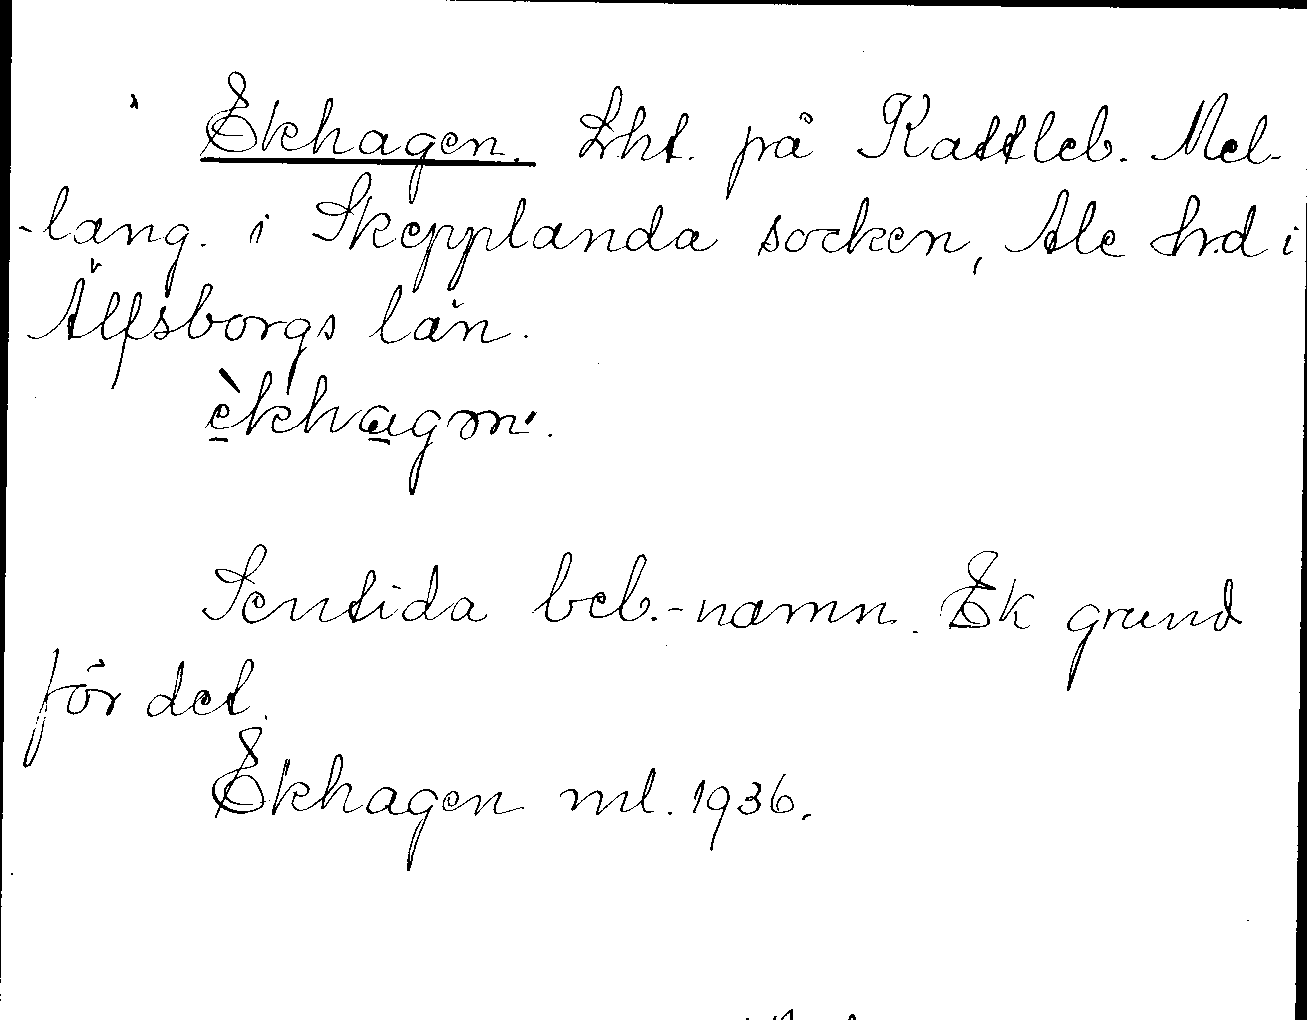 Ekhagen. Lht. på Kattleb. Mel-
-lang. i Skepplanda socken, Ale hrd i
Älfsborgs län.
èkhagən.
Sentida beb.-namn. Ek grund
för det.
Ekhagen ml. 1936.